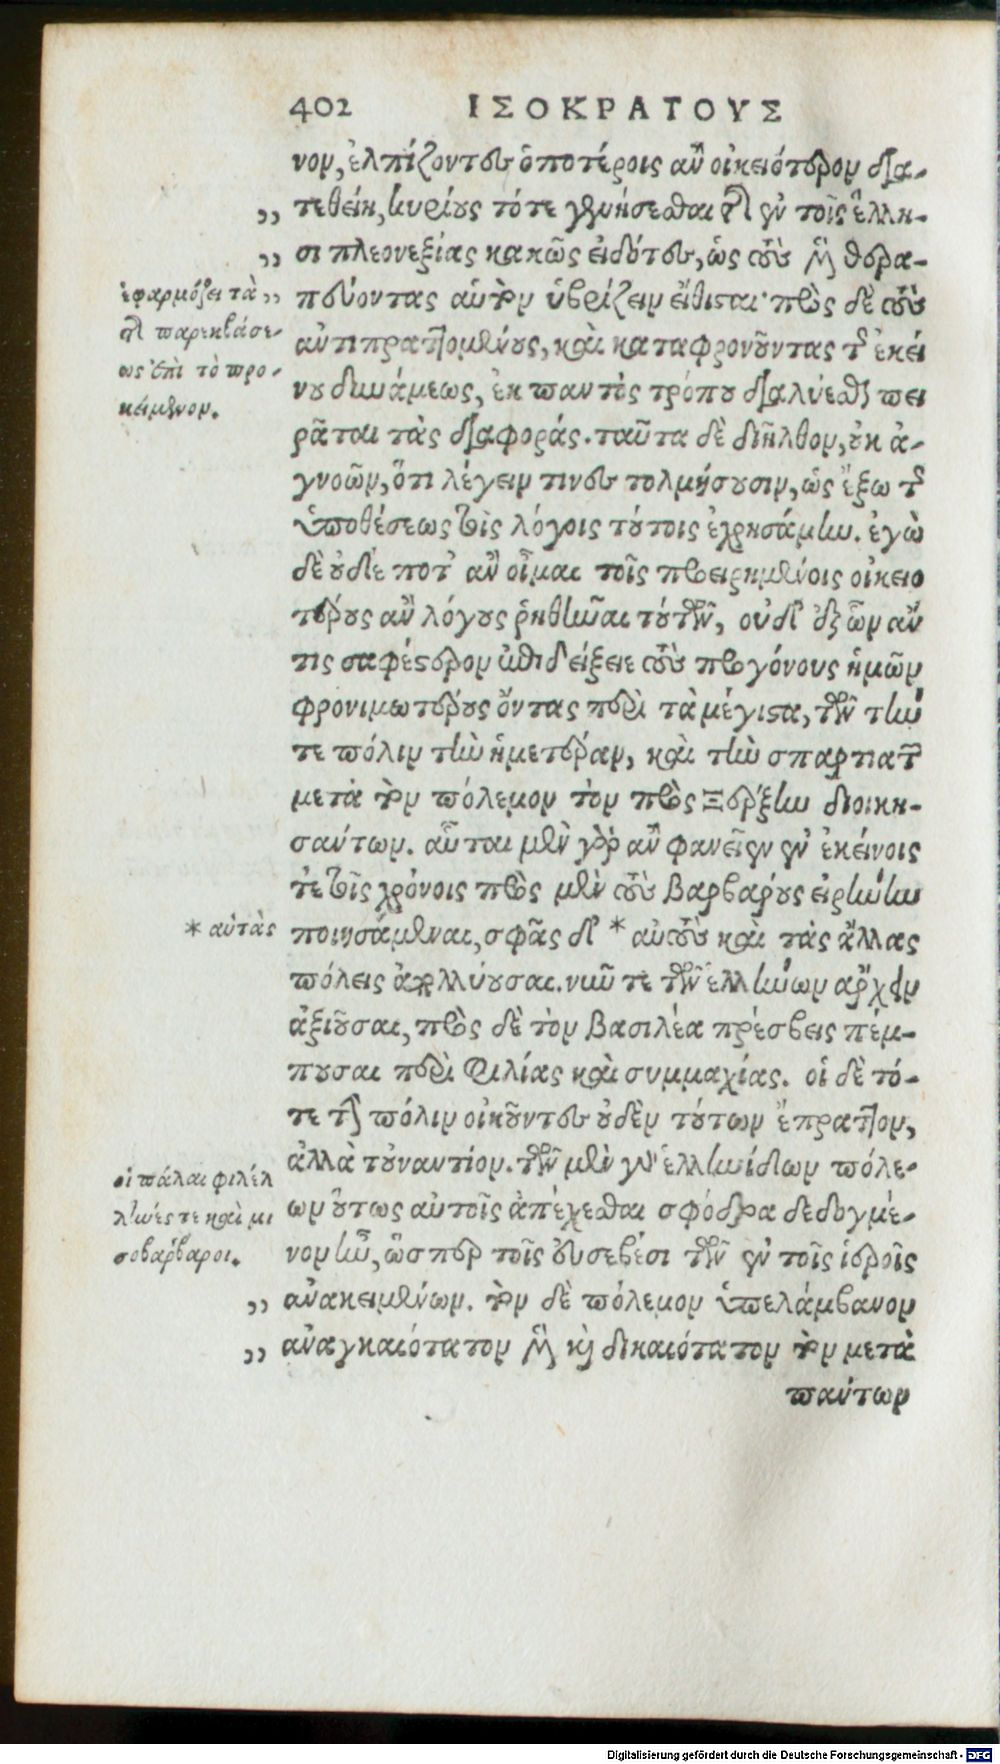 402 ΙΣΟΚΡΑΤΟΥΣ
νον, ἐλπίζοντες ὁποτέροις ἂν οἰκειότερον δια-
„ τεθείη, κυρίους τότε γενήσεσθαι τῆς ἐν τοῖς ἕλλη-
„ σι πλεονεξίας κακῶς εἰδότες, ὡς τοὺς μὲν θερα-
„ πεύοντας αὐτὸν ὑβρίζειν εἴθισται· πρὸς δὲ τοὺς
ἀντιπραττομένους, καὶ καταφρονοῦντας τῆς ἐκεί
νου δυνάμεως, ἐκ παντὸς τρόπου διαλύεσθαι πει
ρᾶται τὰς διαφοράς. ταῦτα δὲ διῆλθον, οὐκ ἀ-
γνοῶν, ὅτι λέγειν τινες τολμήσουσιν, ὡς ἔξω τῆς
ὑποθέσεως τοῖς λόγοις τούτοις ἐχρησάμην. ἐγὼ
δὲ οὐδέ ποτ' ἂν οἶμαι τοῖς προειρημένοις οἰκειο
τέρους ἂν λόγους ῥηθῆναι τούτων, οὐδ' ἐξ ὧν ἄν
τις σαφέστερον ἐπιδείξειε τοὺς προγόνους ἡμῶν
φρονιμωτέρους ὄντας περὶ τὰ μέγιστα, τῶν τήν
τε πόλιν τὴν ἡμετέραν, καὶ τὴν σπαρτιατῶν
μετὰ τὸν πόλεμον τὸν πρὸς Ξέρξην διοικη-
σάντων. αὗται μὲν γὰρ ἂν φανεῖεν ἐν ἐκείνοις
τε τοῖς χρόνοις πρὸς μὲν τοὺς βαρβάρους εἰρήνην
ποιησάμεναι, σφᾶς δ' * αὐτοὺς καὶ τὰς ἄλλας
πόλεις ἀπολλύουσαι. νῦν τε τῶν ἑλλήνων ἄρχειν
ἀξιοῦσαι, πρὸς δὲ τὸν βασιλέα πρέσβεις πέμ-
πουσαι περὶ φιλίας καὶ συμμαχίας. οἱ δὲ τό-
τε τὴν πόλιν οἰκοῦντες οὐδὲν τούτων ἔπραττον,
ἀλλὰ τοὐναντίον. τῶν μὲν γὰρ ἑλληνίδων πόλε-
ων οὕτως αὐτοῖς ἀπέχεσθαι σφόδρα δεδογμέ-
νον ἦν, ὥσπερ τοῖς εὐσεβέσι τῶν ἐν τοῖς ἱεροῖς
„ ἀνακειμένων. τὸν δὲ πόλεμον ὑπελάμβανον
„ ἀναγκαιότατον μὲν καὶ δικαιότατον τὸν μετὰ
πάντων
ἐφαρμόζει τὰ
τῆς παρεκβάσε-
ως ἐπὶ τὸ προ-
κείμενον.
* αὑτὰς
οἱ πάλαι φιλέλ
ληνές τε καὶ μι
σοβάρβαροι.
Digitalisierung gefördert durch die Deutsche Forschungsgemeinschaft - DFG